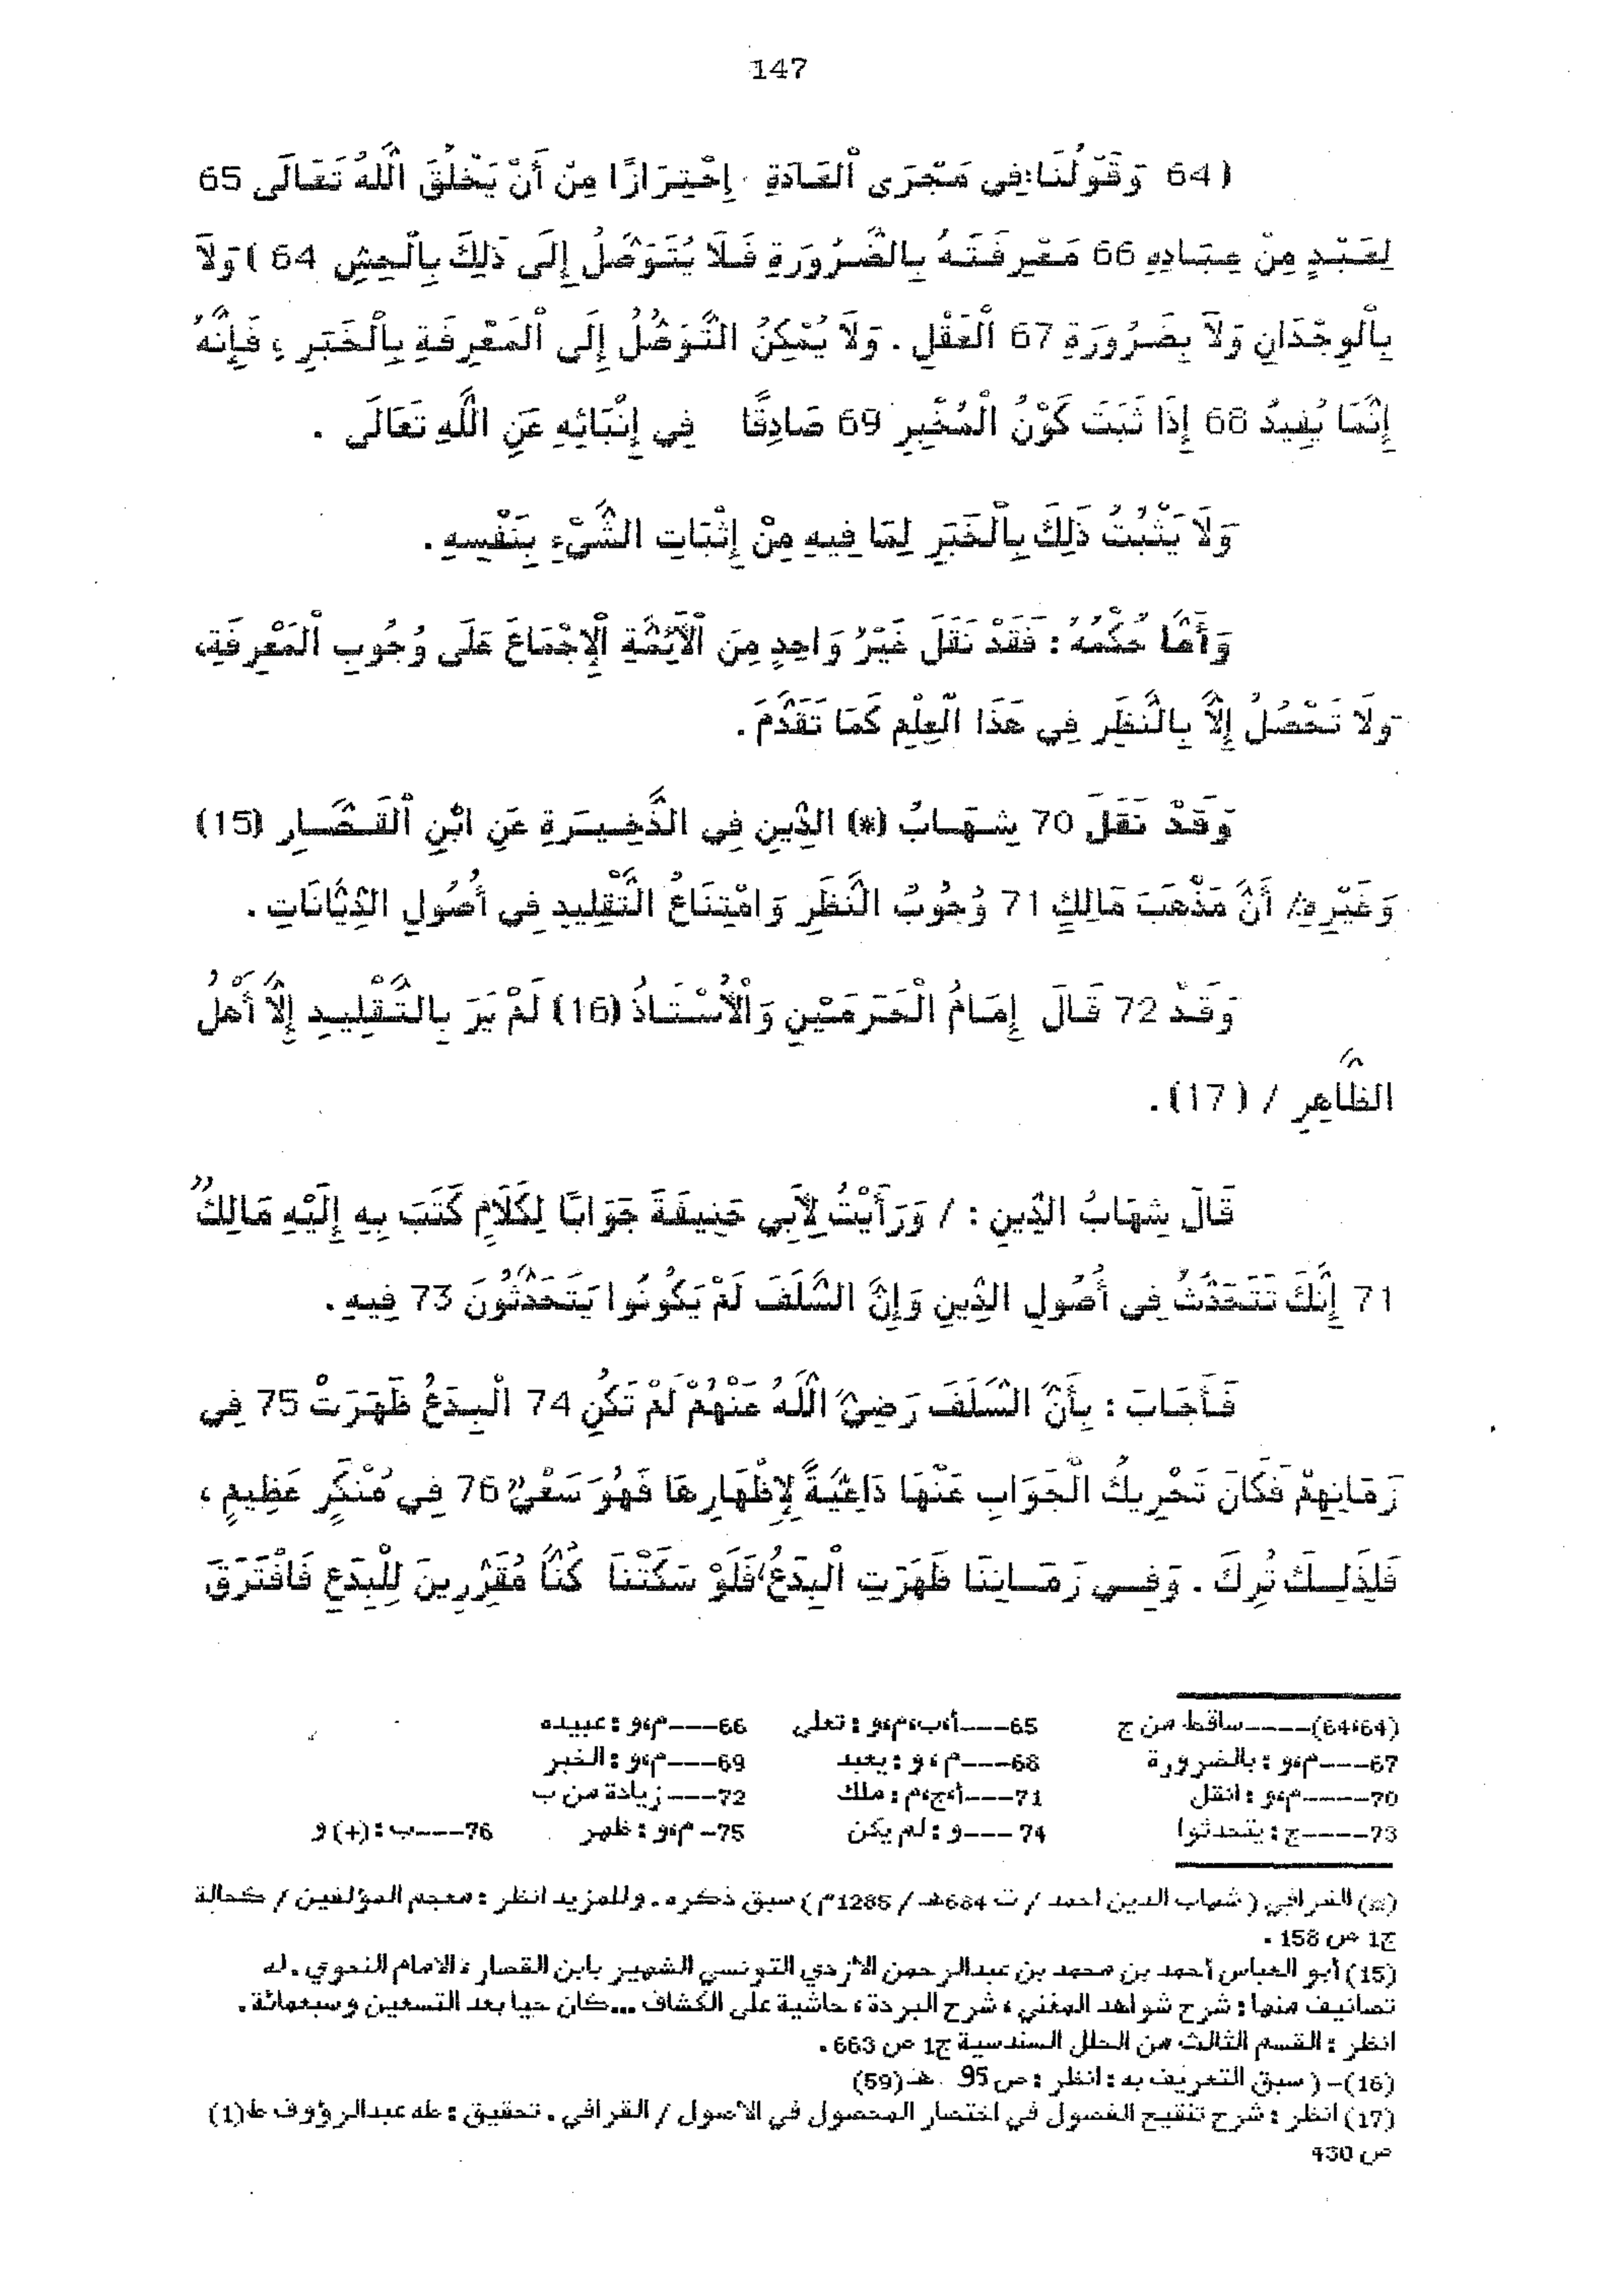 147
(64 وَقَوْلُنَا:فِي مَجْرَى الْعَادَةِ إِحْتِرَازًا مِنْ أَنْ يَخْلُقَ اللَّهُ تَعَالَى 65
لِعَبْدٍ مِنْ عِبَادِهِ 66 مَعْرِفَتَهُ بِالضَّرُورَةِ فَلَا يُتَوَصَّلُ إِلَى ذَلِكَ بِالْحِسِّ 64 ) وَلَا
بِالْوِجْدَانِ وَلَا بِضَرُورَةِ 67 الْعَقْلِ . وَلَا يُمْكِنُ التَّوَصُّلُ إِلَى الْمَعْرِفَةِ بِالْخَبَرِ ، فَإِنَّهُ
إِنَّمَا يُفِيدُ 68 إِذَا ثَبَتَ كَوْنُ الْمُخْبِرِ 69 صَادِقًا فِي إِنْبَائِهِ عَنِ اللَّهِ تَعَالَى .
وَلَا يَثْبُتُ ذَلِكَ بِالْخَبَرِ لِمَا فِيهِ مِنْ إِثْبَاتِ الشَّيْءِ بِنَفْسِهِ .
وَأَمَّا حُكْمُهُ : فَقَدْ نَقَلَ غَيْرُ وَاحِدٍ مِنَ الْأَئِمَّةِ الْإِجْمَاعَ عَلَى وُجُوبِ الْمَعْرِفَةِ،
وَلَا تَحْصُلُ إِلَّا بِالنَّظَرِ فِي هَذَا الْعِلْمِ كَمَا تَقَدَّمَ .
وَقَدْ نَقَلَ 70 شِهَابُ (*) الدِّينِ فِي الذَّخِيرَةِ عَنِ ابْنِ الْقَصَّارِ (15)
وَغَيْرِهِ/ أَنَّ مَذْهَبَ مَالِكٍ 71 وُجُوبُ النَّظَرِ وَامْتِنَاعُ التَّقْلِيدِ فِي أُصُولِ الدِّيَّانَاتِ .
وَقَدْ 72 قَالَ إِمَامُ الْحَرَمَيْنِ وَالْأُسْتَاذُ (16) لَمْ يَرَ بِالتَّقْلِيدِ إِلَّا أَهْلُ
الظَّاهِرِ / (17) .
قَالَ شِهَابُ الدِّينِ : / وَرَأَيْتُ لِأَبِي حَنِيفَةَ جَوَابًا لِكَلَامٍ كَتَبَ بِهِ إِلَيْهِ مَالِكٌ
71 إِنَّكَ تَتَحَدَّثُ فِي أُصُولِ الدِّينِ وَإِنَّ السَّلَفَ لَمْ يَكُونُوا يَتَحَدَّثُونَ 73 فِيهِ .
فَأَجَابَ : بِأَنَّ السَّلَفَ رَضِيَ اللَّهُ عَنْهُمْ لَمْ تَكُنِ 74 الْبِدَعُ ظَهَرَتْ 75 فِي
زَمَانِهِمْ فَكَانَ تَحْرِيكُ الْجَوَابِ عَنْهَا دَاعِيَّةً لِإِظْهَارِهَا فَهُوَ سَعْيٌ 76 فِي مُنْكَرٍ عَظِيمٍ ،
فَلِذَلِكَ تُرِكَ . وَفِي زَمَانِنَا ظَهَرَتِ الْبِدَعُ،فَلَوْ سَكَتْنَا كُنَّا مُقَرِّرِينَ لِلْبِدَعِ فَافْتَرَقَ
(64،64)----ساقط من ج 65---أ،ب،م،و : تعلى 66---م،و : عبيده
67---م،و : بالضرورة 68---م،و : يعبد 69---م،و : الخبر
70----م،و : انقل 71---أ،ج،م : ملك 72---زيادة من ب
73----ج : يتحدثوا 74---و : لم يكن 75-م،و : ظهر 76---ب : (+) و
(*) القرافي ( شهاب الدين احمد / ت 684هـ / 1285م ) سبق ذكره . وللمزيد انظر : معجم المؤلفين / كحالة
ج1 ص 158 .
(15) أبو العباس أحمد بن محمد بن عبدالرحمن الأزدي التونسي الشهير بابن القصار ، الامام النحوي . له
تصانيف منها : شرح شواهد المغني ، شرح البردة ، حاشية على الكشاف ...كان حيا بعد التسعين وسبعمائة .
انظر : القسم الثالث من الحلل السندسية ج1 ص 663 .
(16)-( سبق التعريف به : انظر : ص 95 هـ (59)
(17) انظر : شرح تنقيح الفصول في اختصار المحصول في الأصول / القرافي . تحقيق : طه عبدالرؤوف ط(1)
ص 430